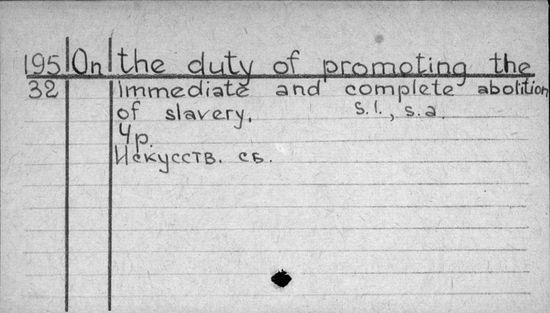 195 On the duty of promoting the
32 immediate and complete abolition
of slavery. s.l., s.a.
4p.
Искусств. сб.